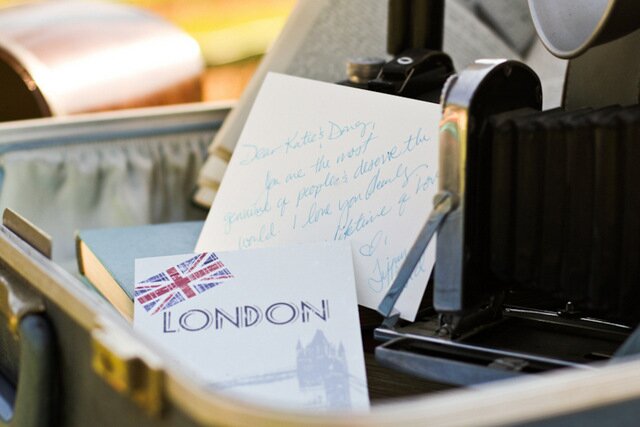 Dear Katie & Doug,
You are the most
genuine of people & deserve the
world. I love you dearly
lifetime of love
LONDON